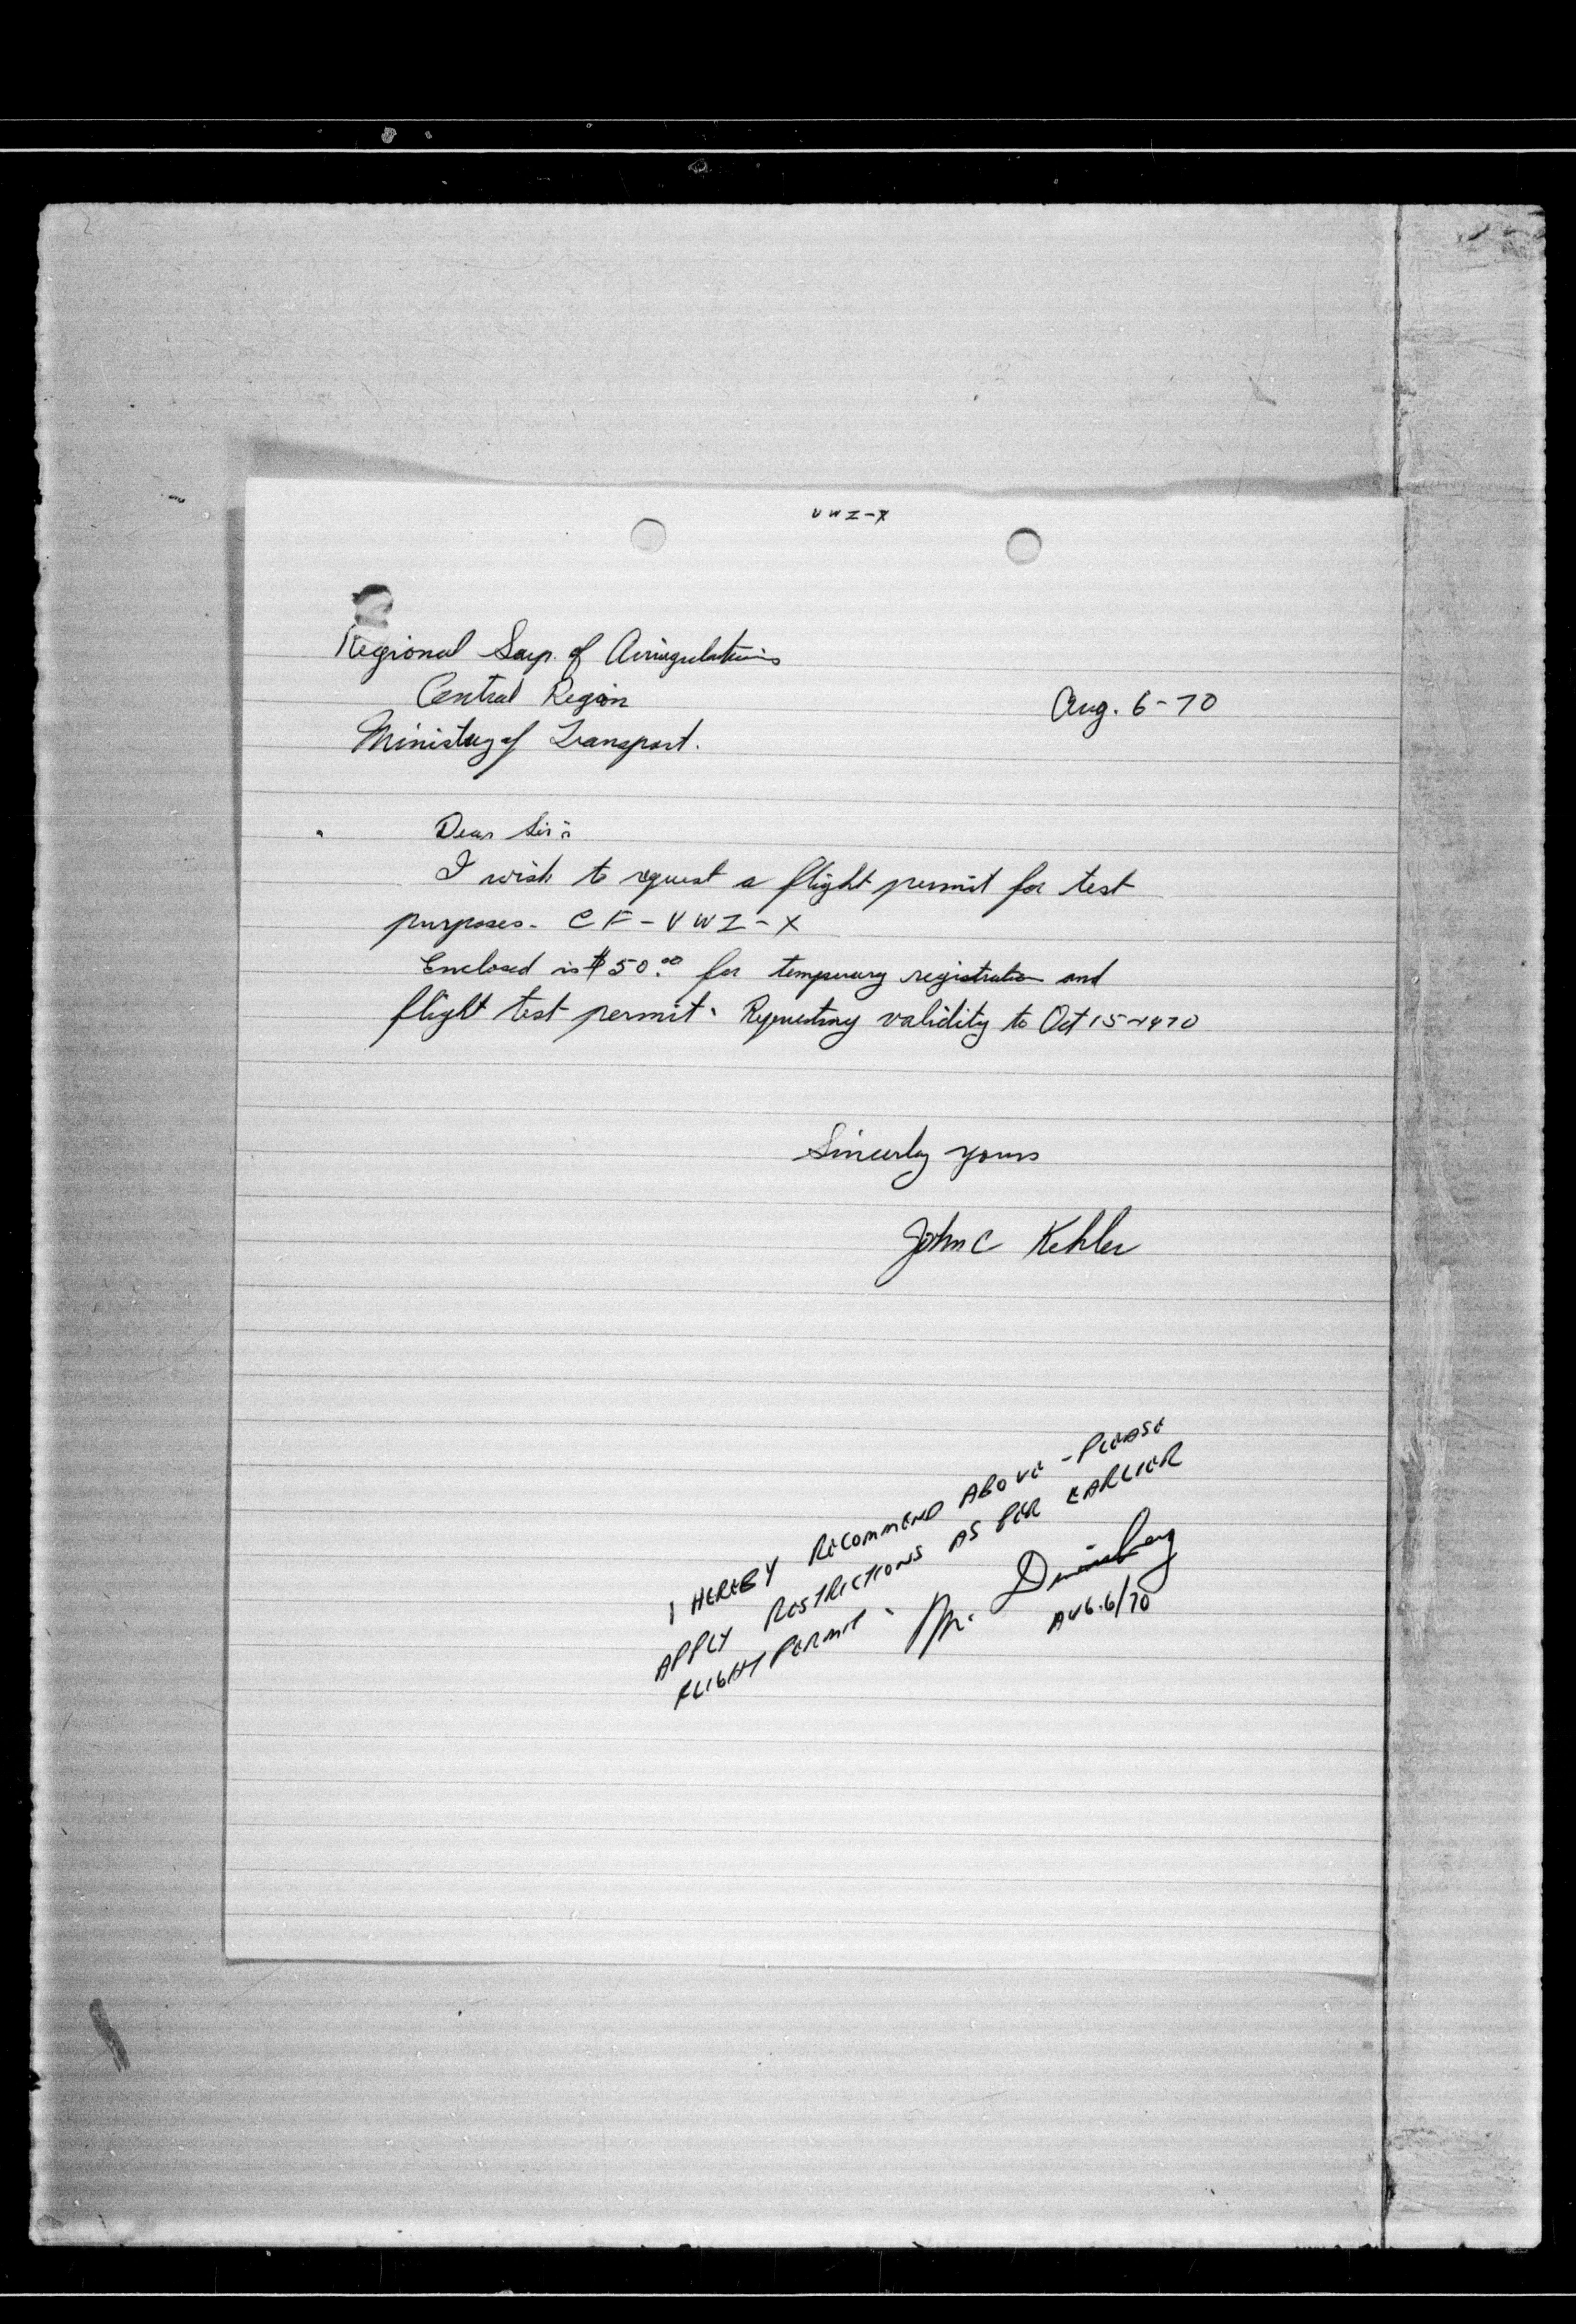 VWI-X
Regional Sup. of Airregulations
Central Region
Aug. 6-70
Ministry of Transport.
Dear Sir:
I wish to request a flight permit for test
purposes. CF-VWI-X
Enclosed is $50.00 for temporary registration and
flight test permit. Requesting validity to Oct 15-1970
Sincerly yours
John C Kehler
I HEREBY RECOMMEND ABOVE - PLEASE
APPLY RESTRICTIONS AS PER EARLIER
FLIGHT PERMIT.
AUG.6/70